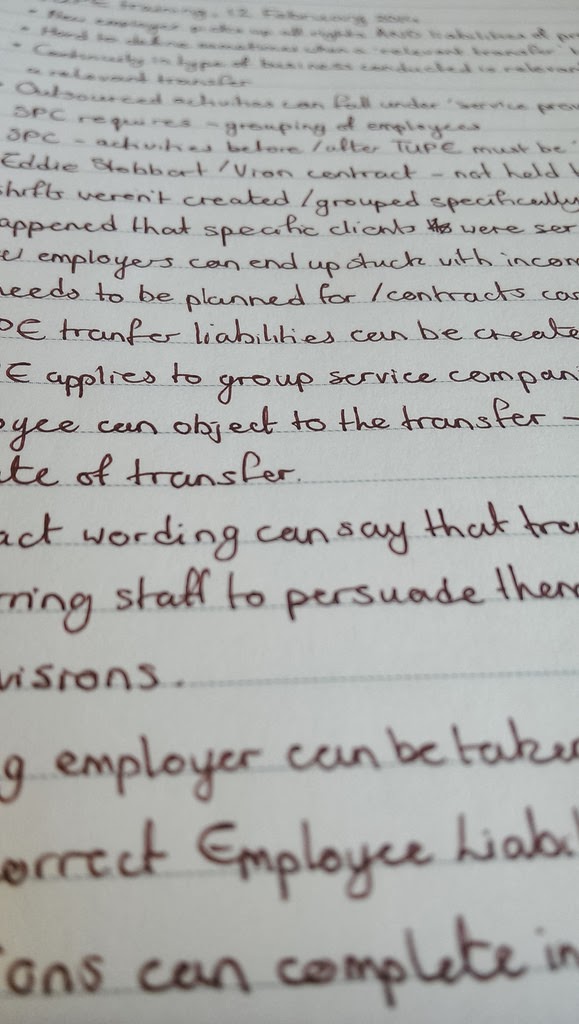 training, 12 February
• New employer takes on all rights and liabilities of
• Hard to define sometimes when a 'relevant transfer'
• Continuity in type of business conducted is relevan
a relevant transfer
• Outsourced activities can fall under 'service prov
SPC requires - grouping of employees
SPC - activities before/after TUPE must be
Eddie Stobbart/Vion contract - not held
shifts weren't created/grouped specifically
appened that specific clients were ser
employers can end up stuck with incom
needs to be planned for/contracts
PE tranfer liabilities can be create
E applies to group service compan
oyee can object to the transfer -
ate of transfer.
act wording can say that tra
rring staff to persuade them
visions.
g employer can be taken
orrect Employee Liabi
ons can complete in